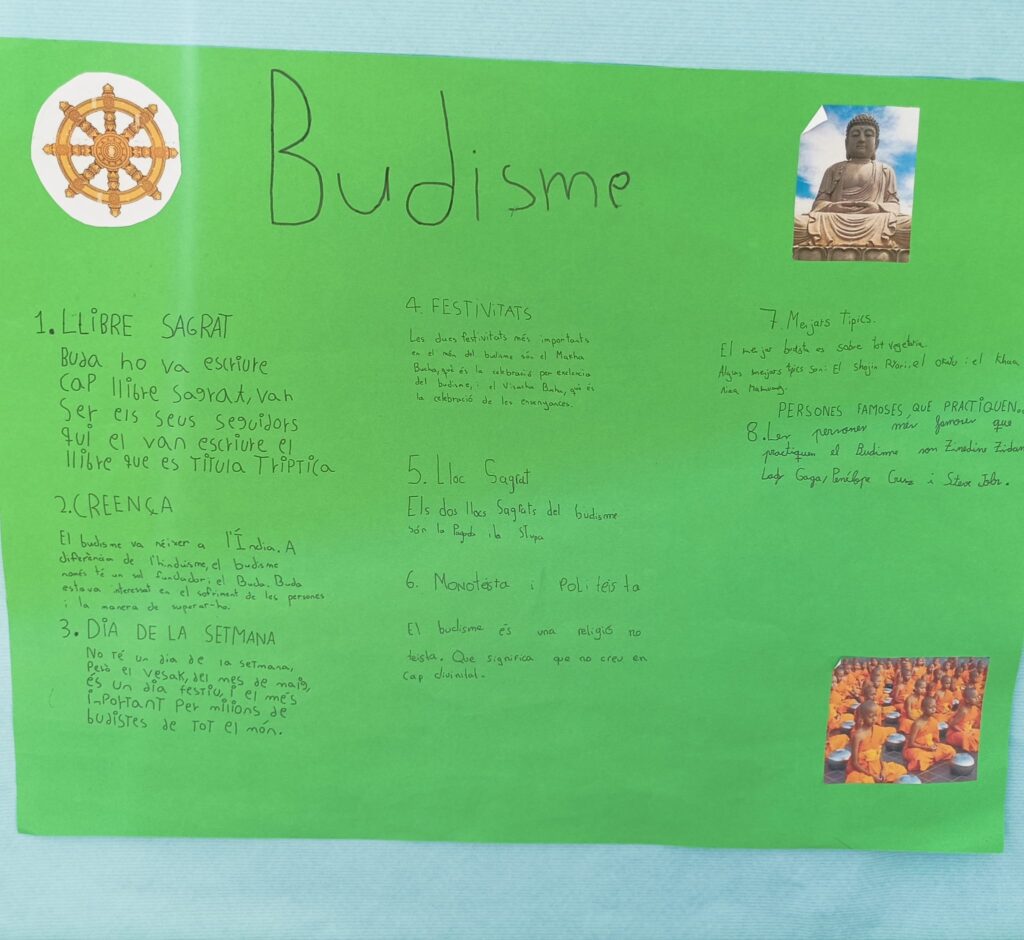 Budisme
1. LLIBRE SAGRAT
Buda no va escriure
cap llibre sagrat, van
ser els seus seguidors
qui el van escriure el
llibre que es titula Triptica
2. CREENÇA
El budisme va néixer a l'Índia. A
diferència de l'hinduisme, el budisme
només té un sol fundador i el Buda. Buda
estava interessat en el sofriment de les persones
i la manera de superar-ho.
3. DIA DE LA SETMANA
No té un dia de la setmana,
Però el vesak, del mes de maig,
és un dia festiu, i el més
important per milions de
budistes de tot el món.
4. FESTIVITATS
Les dues festivitats més importants
en el món del budisme són el Makha
Bucha, què és la celebració per excelencia
del budisme, i el Visakha Bucha, què és
la celebració de les ensenyances.
5. Lloc Sagrat
Els dos llocs Sagrats del budisme
són la Pagoda i la STupa
6. Monoteista i Politéista
El budisme és una religió no
teista. Que significa que no creu en
cap divinitat.
7. Menjars Tipics.
El menjar budista es sobre tot vegetaria.
Alguns menjars tipics son: El Shojin Ryori, el okutu i el Khua
PERSONES FAMOSES QUE PRACTIQUEN
8. Les persones més famoses que
practiquen el Budisme son Zinedine Zidan
Lady Gaga, Penélope Cruz i Steve Jobs.